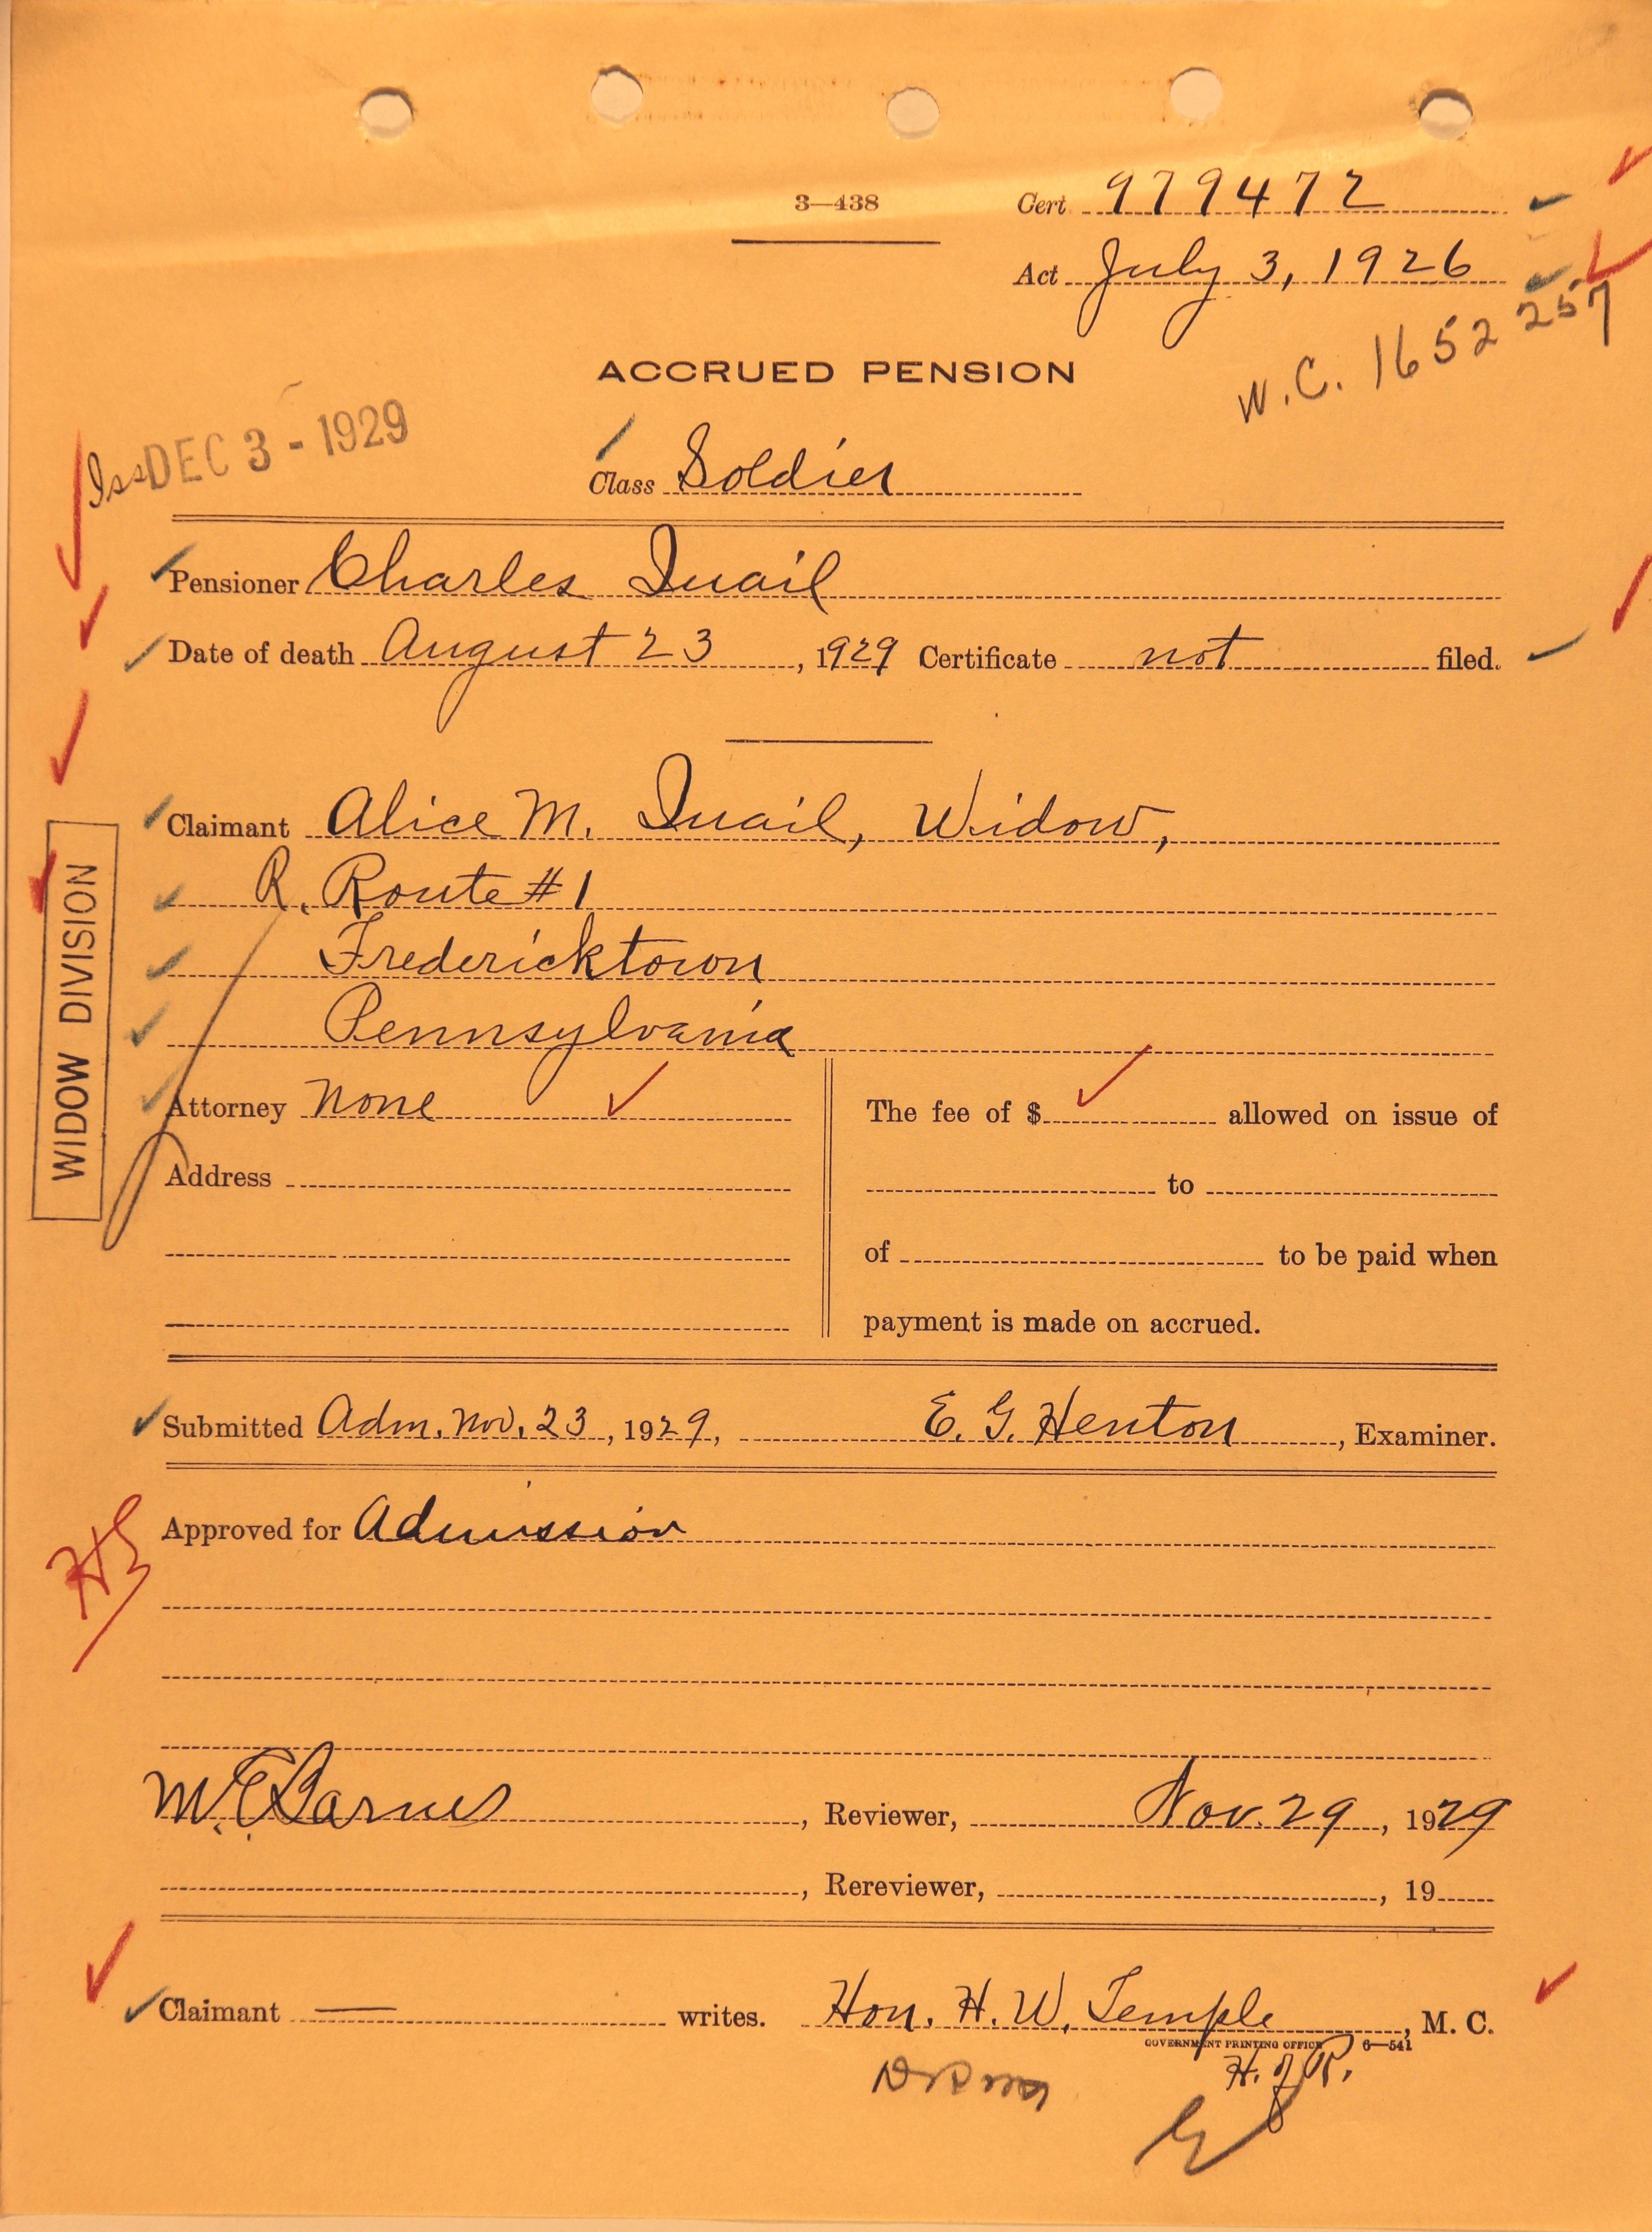 3—438
Cert 979472
Act July 3, 1926
W.C. 1652257
ACCRUED PENSION
Iss DEC 3 - 1929
Class Soldier
Pensioner Charles Quail
Date of death August 23, 1929 Certificate not filed.
Claimant Alice M. Quail, Widow,
R. Route #1
Fredericktown
Pennsylvania
WIDOW DIVISION
Attorney None
Address
The fee of $ allowed on issue of
to
of to be paid when
payment is made on accrued.
Submitted Adm. Nov. 23, 1929, E. G. Henton, Examiner.
Approved for Admission
M.C. Barnes, Reviewer, Nov. 29, 1929
, Rereviewer, , 19
Claimant — writes. Hon. H. W. Temple, M. C.
GOVERNMENT PRINTING OFFICE 6—541
H. of R.